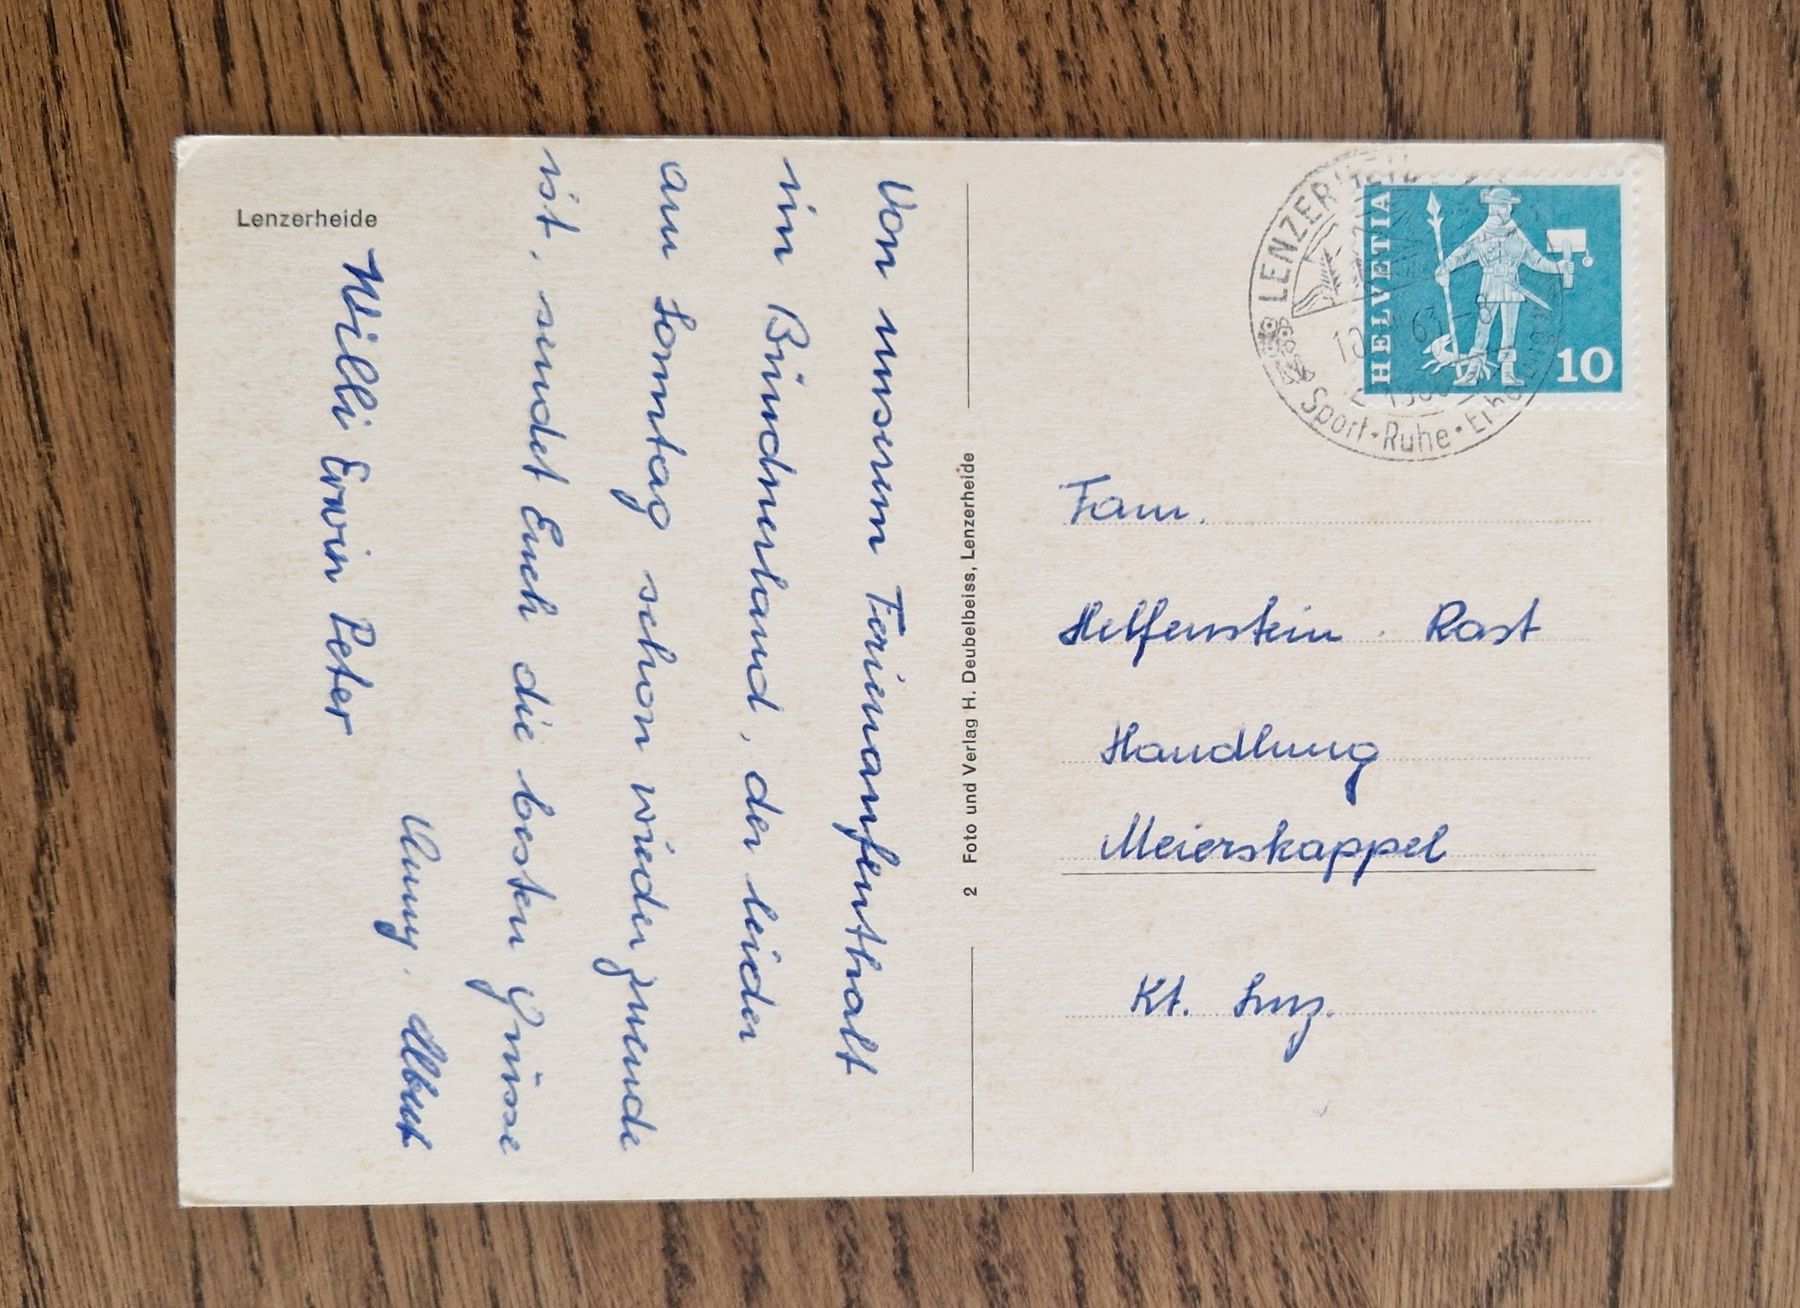 Lenzerheide
Von unserem Ferienaufenthalt
im Bündnerland, der leider
am Sonntag schon wieder zuende
ist, sendet Euch die besten Grüsse
Albert
Willi Erwin Peter
2 Foto und Verlag H. Deubelbeiss, Lenzerheide
HELVETIA
10
LENZERHEIDE
63-8
Sport·Ruhe·
Fam.
Helfenstein. Rast
Handlung
Meierskappel
Kt. Luz.